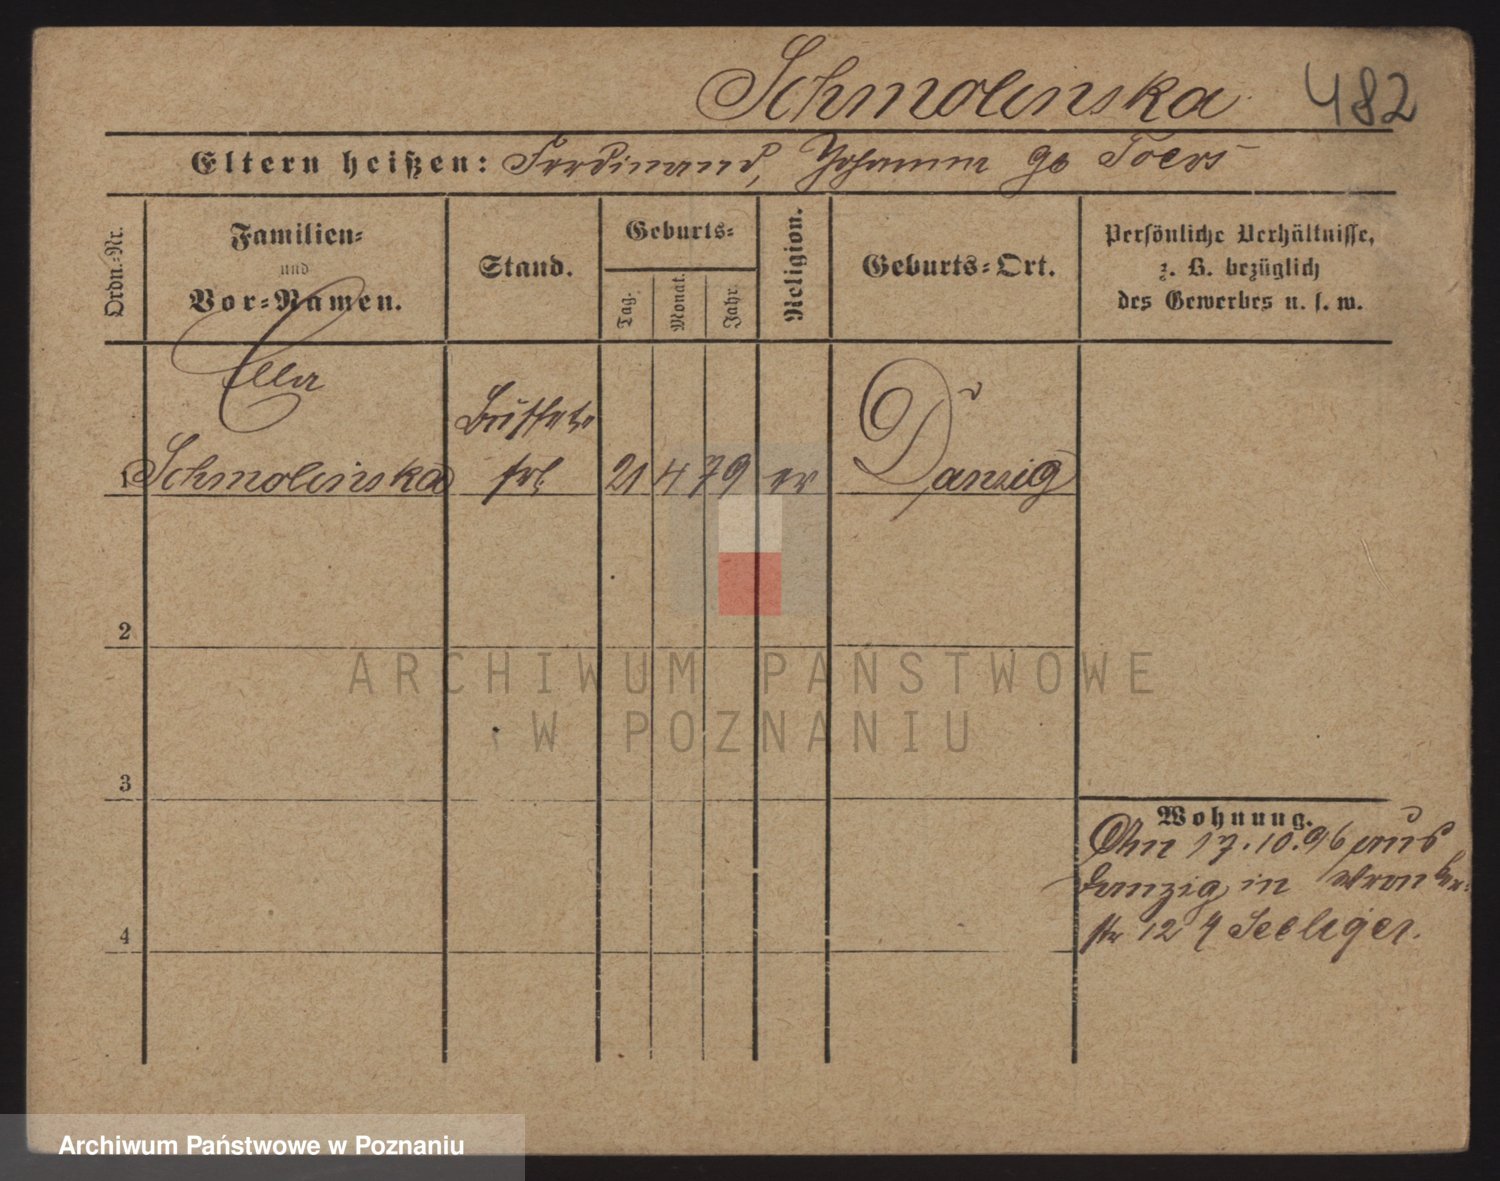 Schmolinska 482
Eltern heißen: Ferdinand, Johanna gb Toews
Ordn.-Nr.
Familien-
und
Vor-Namen.
Stand.
Geburts-
Tag.
Monat.
Jahr.
Religion.
Geburts-Ort.
Persönliche Verhältnisse,
z. B. bezüglich
des Gewerbes u. s. w.
Ella
Buffet-
1 Schmolinska frl 21 4 79 ev Danzig
2
ARCHIWUM PAŃSTWOWE
W POZNANIU
3
Wohnung.
An 17.10.96 aus
Danzig in Wronker-
4
str 12 Seeliger.
Archiwum Państwowe w Poznaniu